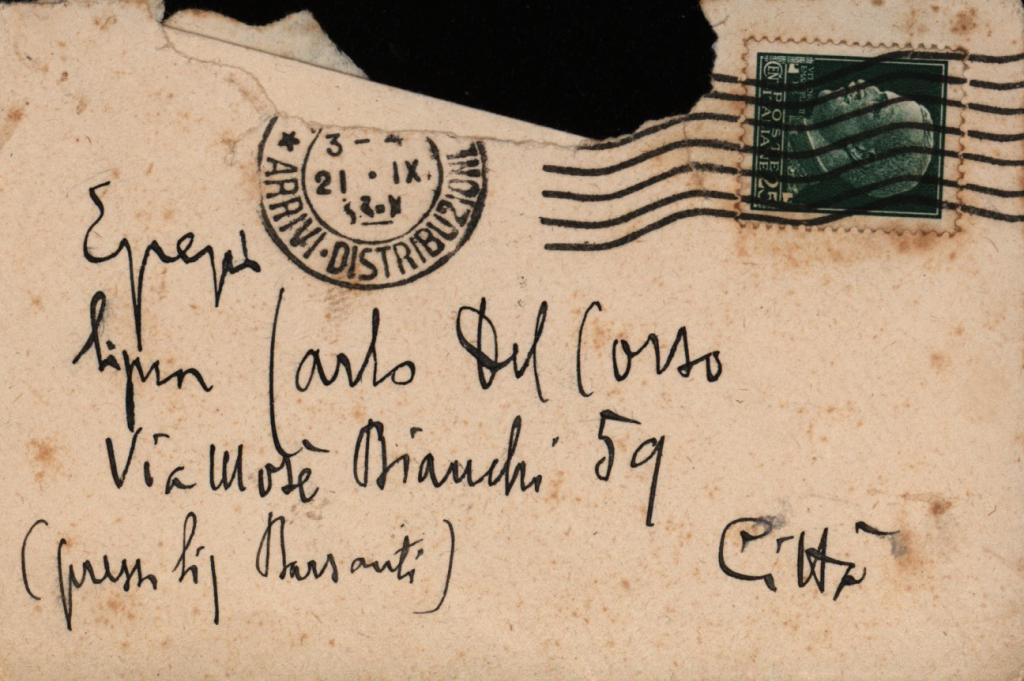 3 - 4
21 · IX.
ARRIVI · DISTRIBUZIONE
POSTE
ITALIANE
25
Egregio
Signor Carlo Del Corso
Via Mosè Bianchi 59
(presso Sig Barsanti)
Città